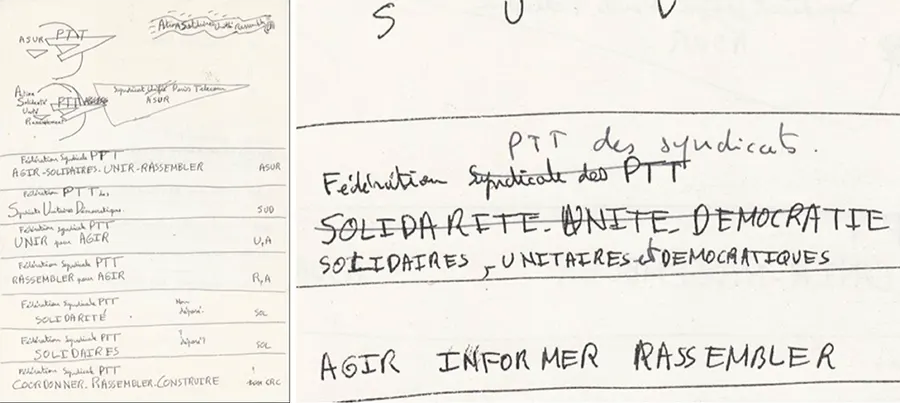 ASUR PTT
Action Solidaires Unité Rassembler
Action
Solidarité
Unité
Rassemblement
PTT
Syndicat Unifié Postes Telecom
ASUR
Fédération Syndicale PTT
AGIR-SOLIDAIRES-UNIR-RASSEMBLER ASUR
Fédération PTT des
Syndicats Unitaires Démocratiques. SUD
Fédération syndicale PTT
UNIR pour AGIR U,A
Fédération syndicale PTT
RASSEMBLER pour AGIR R,A
Fédération Syndicale PTT Nom
SOLIDARITÉ déposé. SOL
Fédération Syndicale PTT
SOLIDAIRES déposé? SOL
Fédération Syndicale PTT
COORDONNER.RASSEMBLER.CONSTRUIRE CRC
S U D
PTT des syndicats.
Fédération Syndicale des PTT
SOLIDARITE-UNITE-DEMOCRATIE
SOLIDAIRES, UNITAIRES et DEMOCRATIQUES
AGIR INFORMER RASSEMBLER